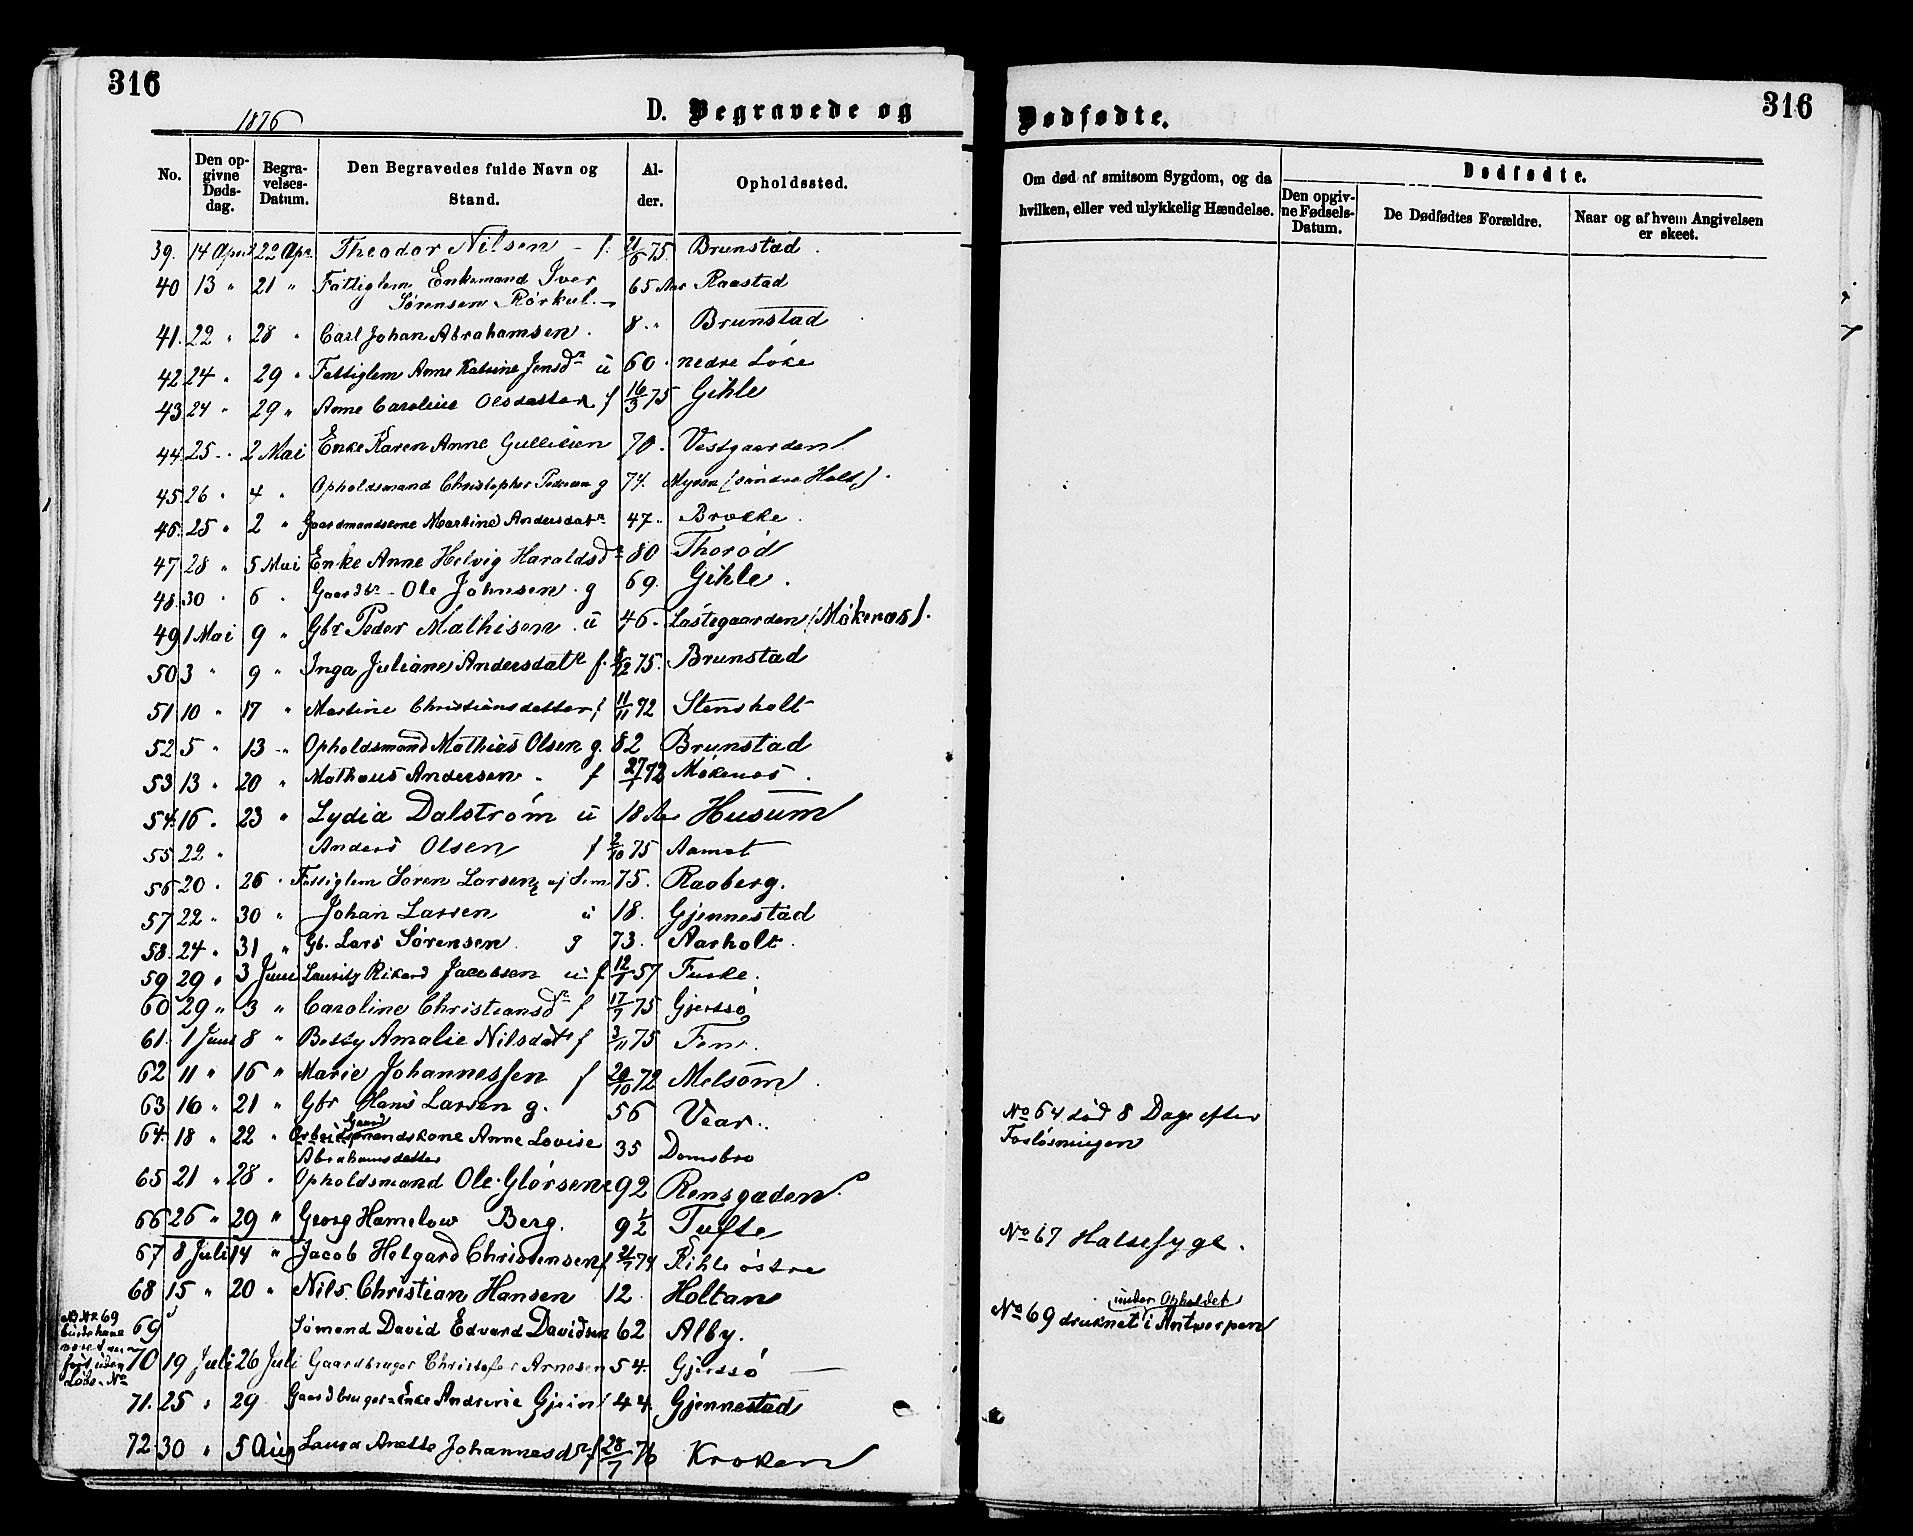 316
1876
D. Begravede og
No. Den opgivne Dødsdag. Begravelses-Datum. Den Begravedes fulde Navn og Stand. Alder. Opholdssted.
39. 14 April 22 Apr. Theodor Nilsen - f. 21/6 75. Brunstad.
40 13 " 21 " Fattiglem Enkemand Iver
Sørensen Rørkul. 65 Aar Raastad
41. 22 " 28 " Carl Johan Abrahamsen. 8. " Brunstad
42 24 " 29 " Fattiglem Anne Katrine Jensdr u 60. nedre Løke
43 24 " 29 " Anne Caroline Olsdatter f 16/3 75 Gihle
44 25 " 2 Mai Enke Karen Anne Gulliksen 70. Vestgaarden
45 26 " 4 " Opholdsmand Christopher Pedersen g 74. Myren (søndre Holt).
46. 25 " 2 " Gaardmandskone Martine Andersdatr 47 " Brekke.
47 28 " 5 Mai Enke Anne Helvig Haraldsdr 80 Thorød
48. 30 " 6 " Gaardbr. Ole Johnsen. g 69. Gihle.
49 1 Mai 9 " Gbr Peder Mathisen u 46. Løstegaarden (Møkenæs).
50 3 " 9 " Inga Juliane Andersdatr f. 8/12 75. Brunstad
51 10 " 17 " Martine Christiansdatter f 11/11 72 Stensholt
52 5 " 13 " Opholdsmand Mathias Olsen g. 82 Brunstad
53 13 " 20 " Mathæus Andersen. f 27/1 72 Møkenæs.
54. 16 " 23 " Lydia Dalstrøm u 18 Aar Husum
55 22 " Anders Olsen f 2/10 75 Aamot
56 20 " 26 " Fattiglem Soren Larsen, af Sem 75. Raaberg.
57 22 " 30 " Johan Larsen u 18. Gjennestad
58. 24 " 31 " Gb. Lars Sørensen g 73. Aarholt.
59 29 " 3 Juni Lauritz Rikard Jacobsen u f 12/7 57 Fuske.
60 29 " 3 " Caroline Christiansdr f 17/7 75 Gjerssø
61. 1 Juni 8 " Betsy Amalie Nilsdatr f 3/11 75 Fen.
62 11 " 16 " Marie Johannessen f 20/10 72 Melsom.
63 16 " 21 " Gbr Hans Larsen g. 56 Vear.
64. 18 " 22 " Arbeidsmandskone Anne Lovise
Gaard
Abrahamsdatter 35 Domsbro
65 21 " 28 " Opholdsmand Ole Glørsen 92 Rensgaden.
66 26 " 29 " Georg Hamelow Berg. 9 1/2 Tufte
67 8 Juli 14 " Jacob Helgard Christensen f 21/7 74 Kihle østre
68 15 " 20 " Nils Christian Hansen 12 Holtan
69 Sømand David Edvard Davidsen 62 Alby.
NB. No 69
burde have
været
ført uden
Løbe-No
70 19 Juli 26 Juli Gaardbruger Christofer Arnesen 54. Gjerssø
71. 25 " 29 Gaardbruger-Enke Andrine Gjein 44. Gjennestad
72 30 " 5 Aug Laura Anette Johannesdr. f 28/7 76 Kroken
316
Dødfødte.
Om død af smitsom Sygdom, og da hvilken, eller ved ulykkelig Hændelse.
Dødfødte.
Den opgivne Fødsels-Datum. De Dødfødtes Forældre. Naar og af hvem Angivelsen er skeet.
No 64 død 8 Dage efter
Forløsningen
No 67 Halsesyge.
under Opholdet
No 69 druknet i Antwerpen